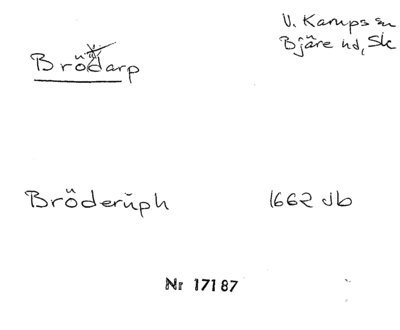 V. Karups sn
Bjäre hd, Sk
Brödarp
Bröderŭph 1662 Jb
Nr 17187